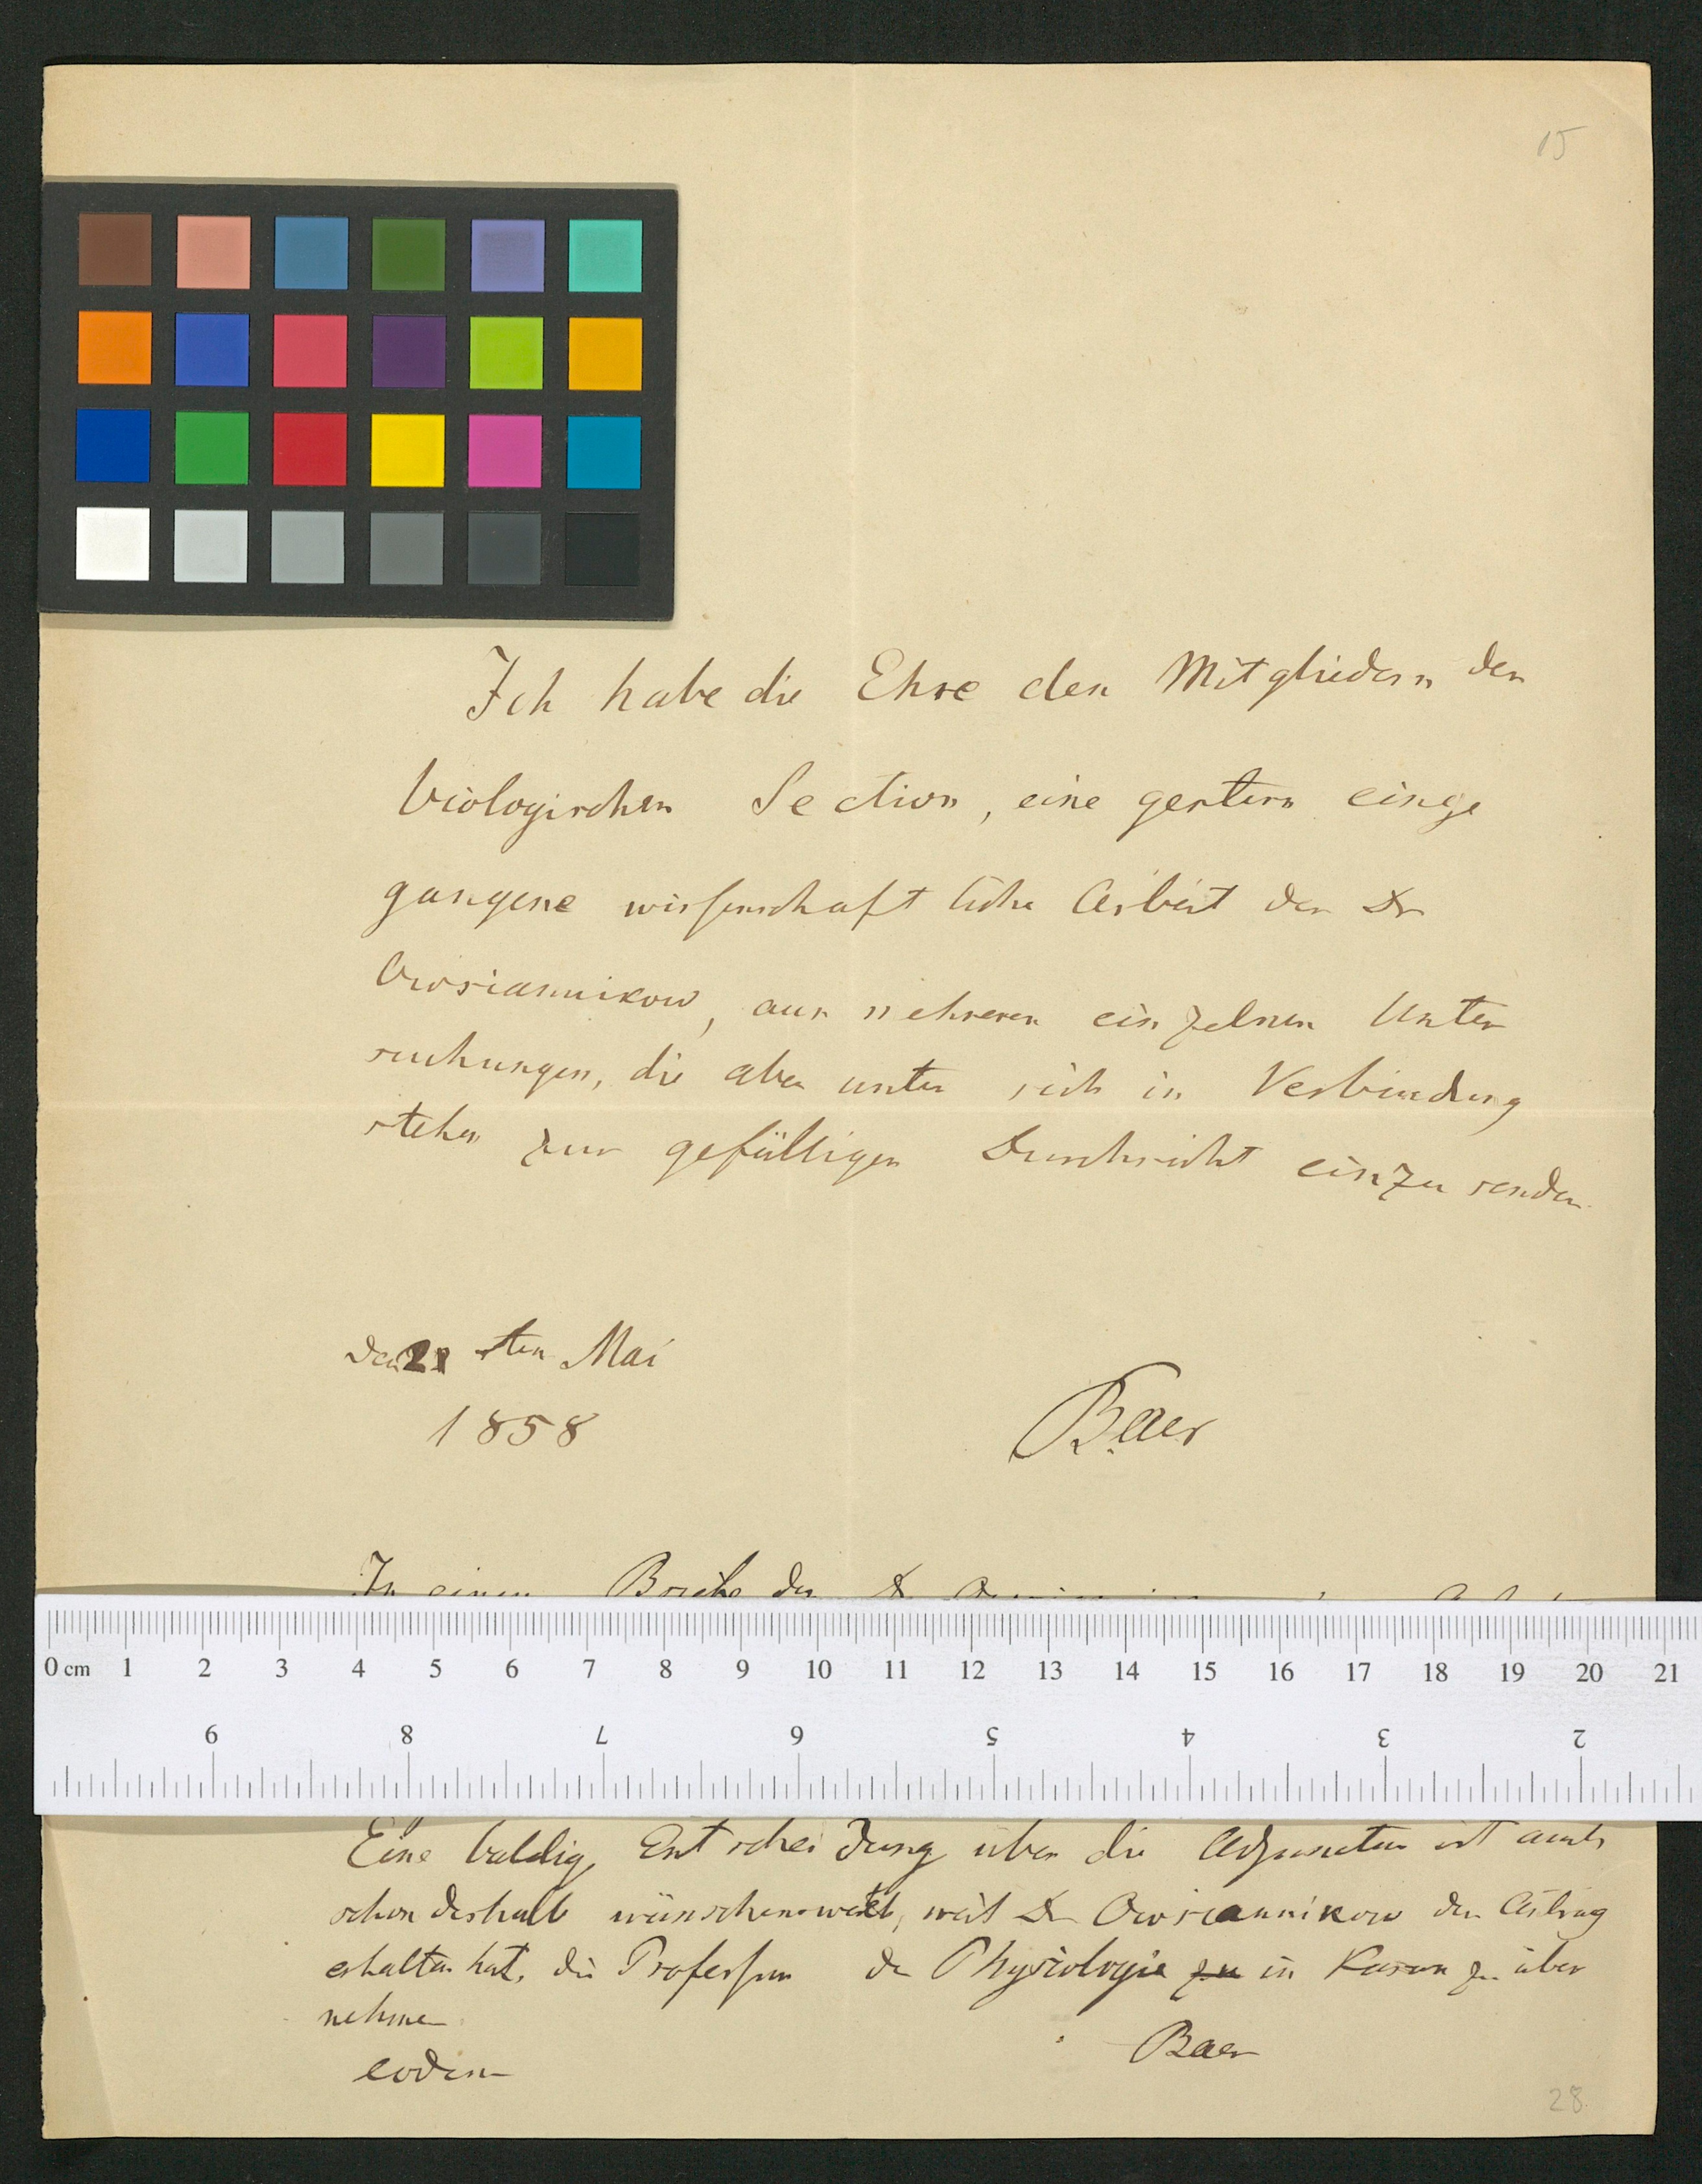 15
Ich habe die Ehre den Mitgliedern der
biologischen Section, eine gestern einge
gangene wissenschaftliche Arbeit des Dr
Owsiannikow, aus mehreren einzelnen Unter
suchungen, die aber unter sich in Verbindung
stehen zur gefälligen Durchsicht einzusenden
den 21 sten Mai
1858
Baer
In einem Briefe des Dr
0 cm 1 2 3 4 5 6 7 8 9 10 11 12 13 14 15 16 17 18 19 20 21
9 8 7 6 5 4 3 2
Eine baldige Entscheidung über die Adjunctur ist auch
schon deshalb wünschenswerth, weil Dr Owsiannikow den Antrag
erhalten hat, die Professur der Physiologie zu in Kasan zu über
nehmen
Baer
eodem
28